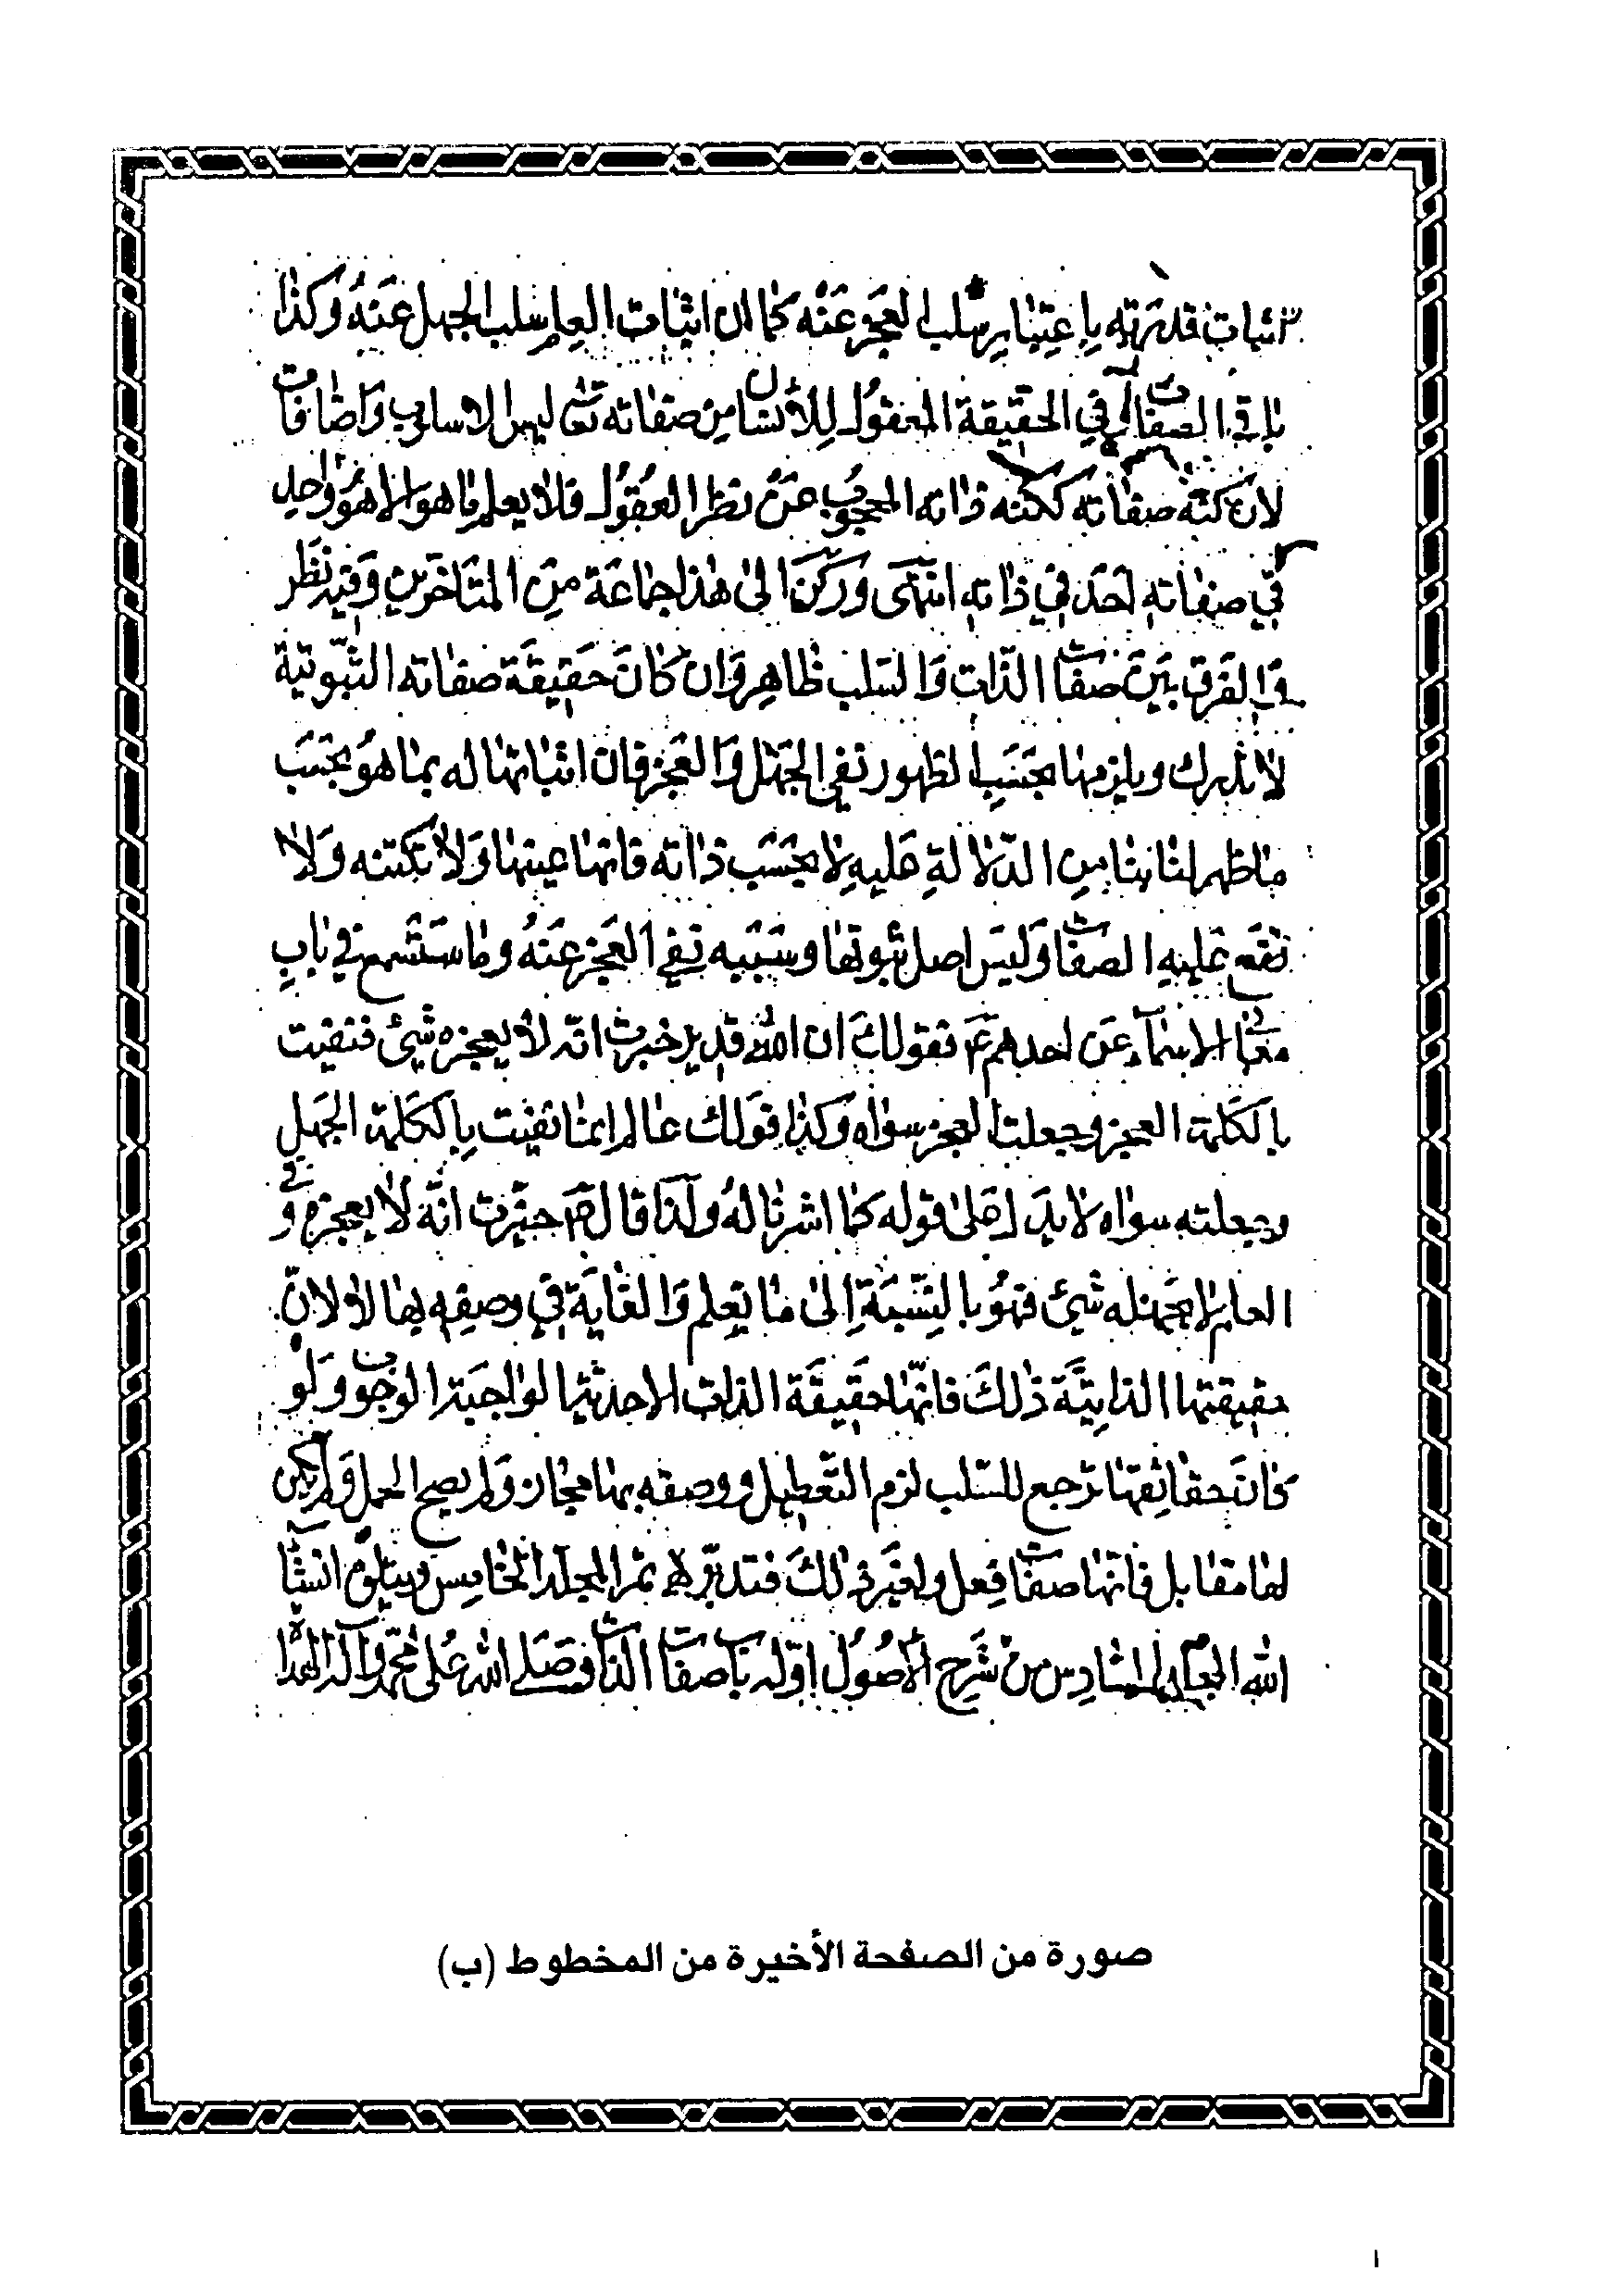 اثبات قدرته باعتبار سلب العجز عنه كما ان اثبات العلم سلب الجهل عنه وكذا
باقي الصفات في الحقيقة المعقول للانسان من صفاته تعالى ليس الا سلوب واضافات
لان كنه صفاته ككنه ذاته المحجوب عن نظر العقول فلا يعلم ما هو الا هو واحد
في صفاته احد في ذاته انتهى وركن الى هذا جماعة من المتاخرين وفيه نظر
والفرق بين صفات الذات والسلب ظاهر وان كان حقيقة صفاته الثبوتية
لا تدرك ويلزمها بحسب الظهور نفي الجهل والعجز فان اثباتها له بما هو بحسب
ما ظهر لنا بنا من الدلالة عليه لا بحسب ذاته فانها عينها ولا بكنهه ولا
تقع عليه الصفات وليس اصل ثبوتها وسببه نفي العجز عنه وما ستسمع في باب
معاني الاسماء عن احدهم ع فقولك ان الله قدير خبرت انه لا يعجزه شيئ فنفيت
بالكلمة العجز وجعلت العجز سواه وكذا قولك عالم انما نفيت بالكلمة الجهل
وجعلته سواه لا يدل على قوله كما اشرنا له ولذا قال ع خبرت انه لا يعجزه وفي
العالم لا يجهله شيئ فهو بالنسبة الى ما يعلم والغاية في وصفه بها لا لان
حقيقتها الذاتية ذلك فانها حقيقة الذات الاحدية الواجبة الوجود ولو
كانت حقائقها ترجع للسلب لزم التعطيل ووصفه بها مجاز ولم يصح الحمل ولم يكن
لها مقابل فانها صفات فعل ولغير ذلك فتدبر تم المجلد الخامس ويتلوه انشاء
الله المجلد السادس من شرح الاصول اوله باب صفات الذات وصلى الله على محمد وآله الهداة
صورة من الصفحة الأخيرة من المخطوط (ب)